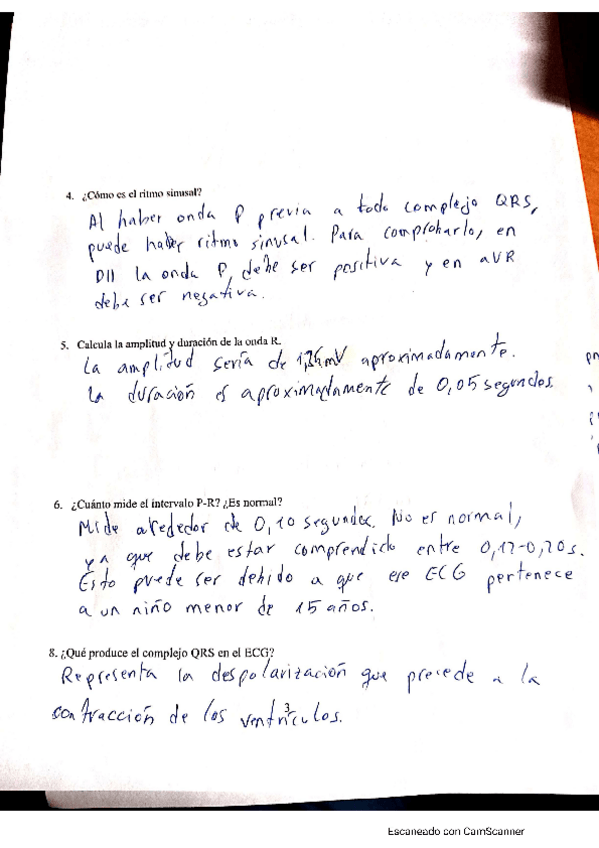 4. ¿Cómo es el ritmo sinusal?
Al haber onda P previa a todo complejo QRS,
puede haber ritmo sinusal. Para comprobarlo, en
DII la onda P, debe ser positiva y en aVR
debe ser negativa.
5. Calcula la amplitud y duración de la onda R.
La amplitud sería de mV aproximadamente.
La duración es aproximadamente de 0,05 segundos.
6. ¿Cuánto mide el intervalo P-R? ¿Es normal?
Mide alrededor de 0,10 segundos. No es normal,
ya que debe estar comprendido entre 0,12-0,20s.
Esto puede ser debido a que ese ECG pertenece
a un niño menor de 15 años.
8. ¿Qué produce el complejo QRS en el ECG?
Representa la despolarización que precede a la
contracción de los ventrículos.
3
Escaneado con CamScanner